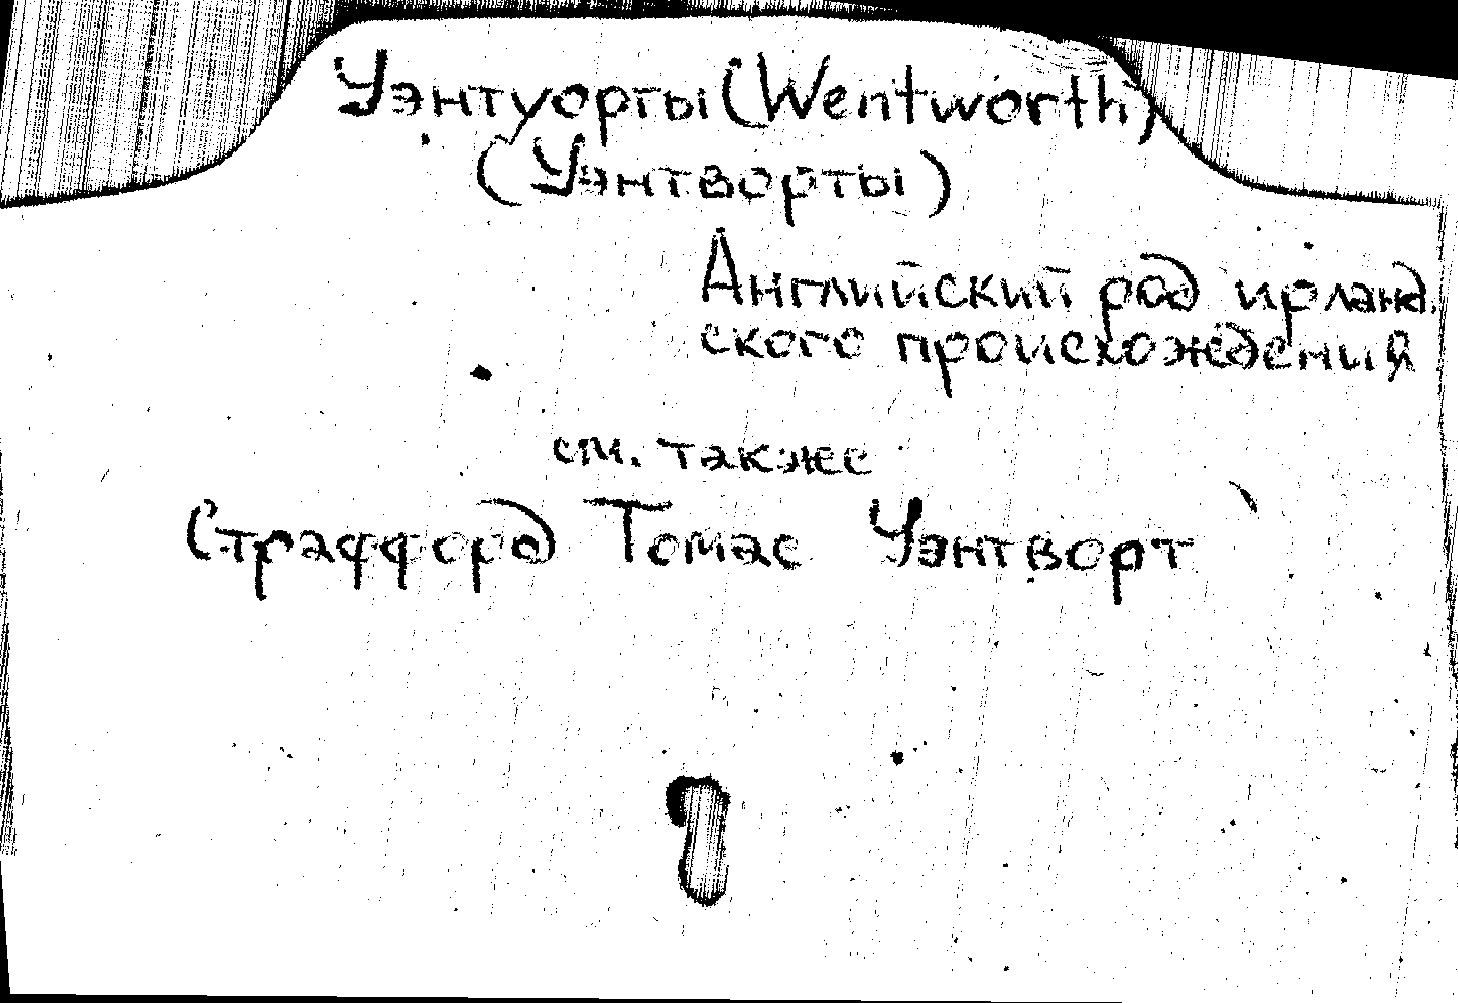 Уэнтуорты (Wentworth)
(Уэнтворты)
Английский род ирланд.
ского происхождения
см. также
Страффорд Томас Уэнтворт